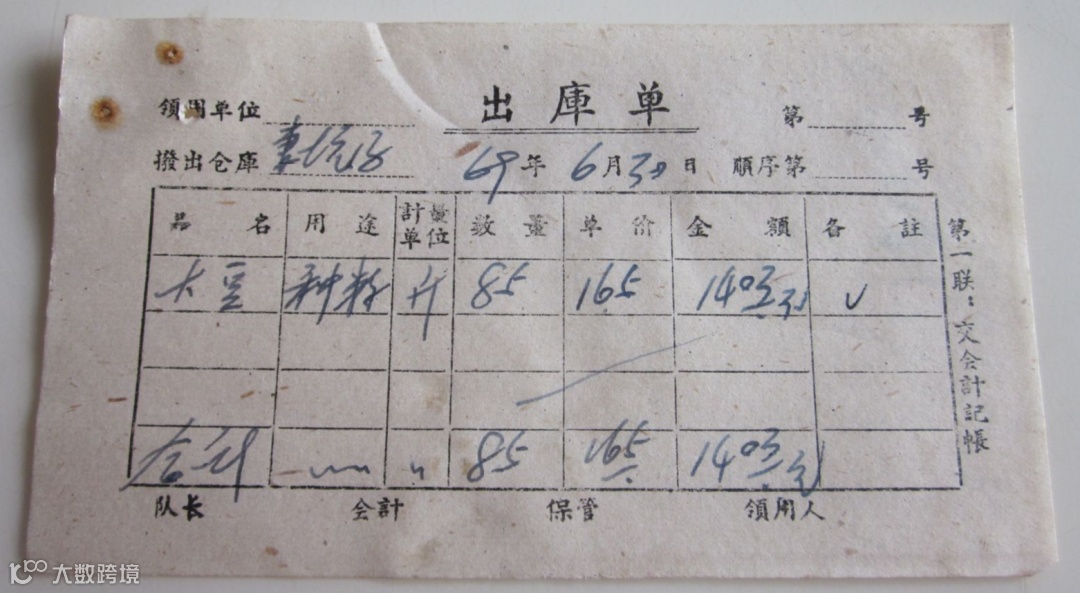 出庫单
領用单位 第 号
撥出仓庫 69年6月30日 順序第 号
品名 用途 計量单位 数量 单价 金額 各註
大豆 种籽 斤 85 165 140
合计 〃 85 165 140
队长 会計 保管 領用人
第一联：交会計記帳
大数跨境